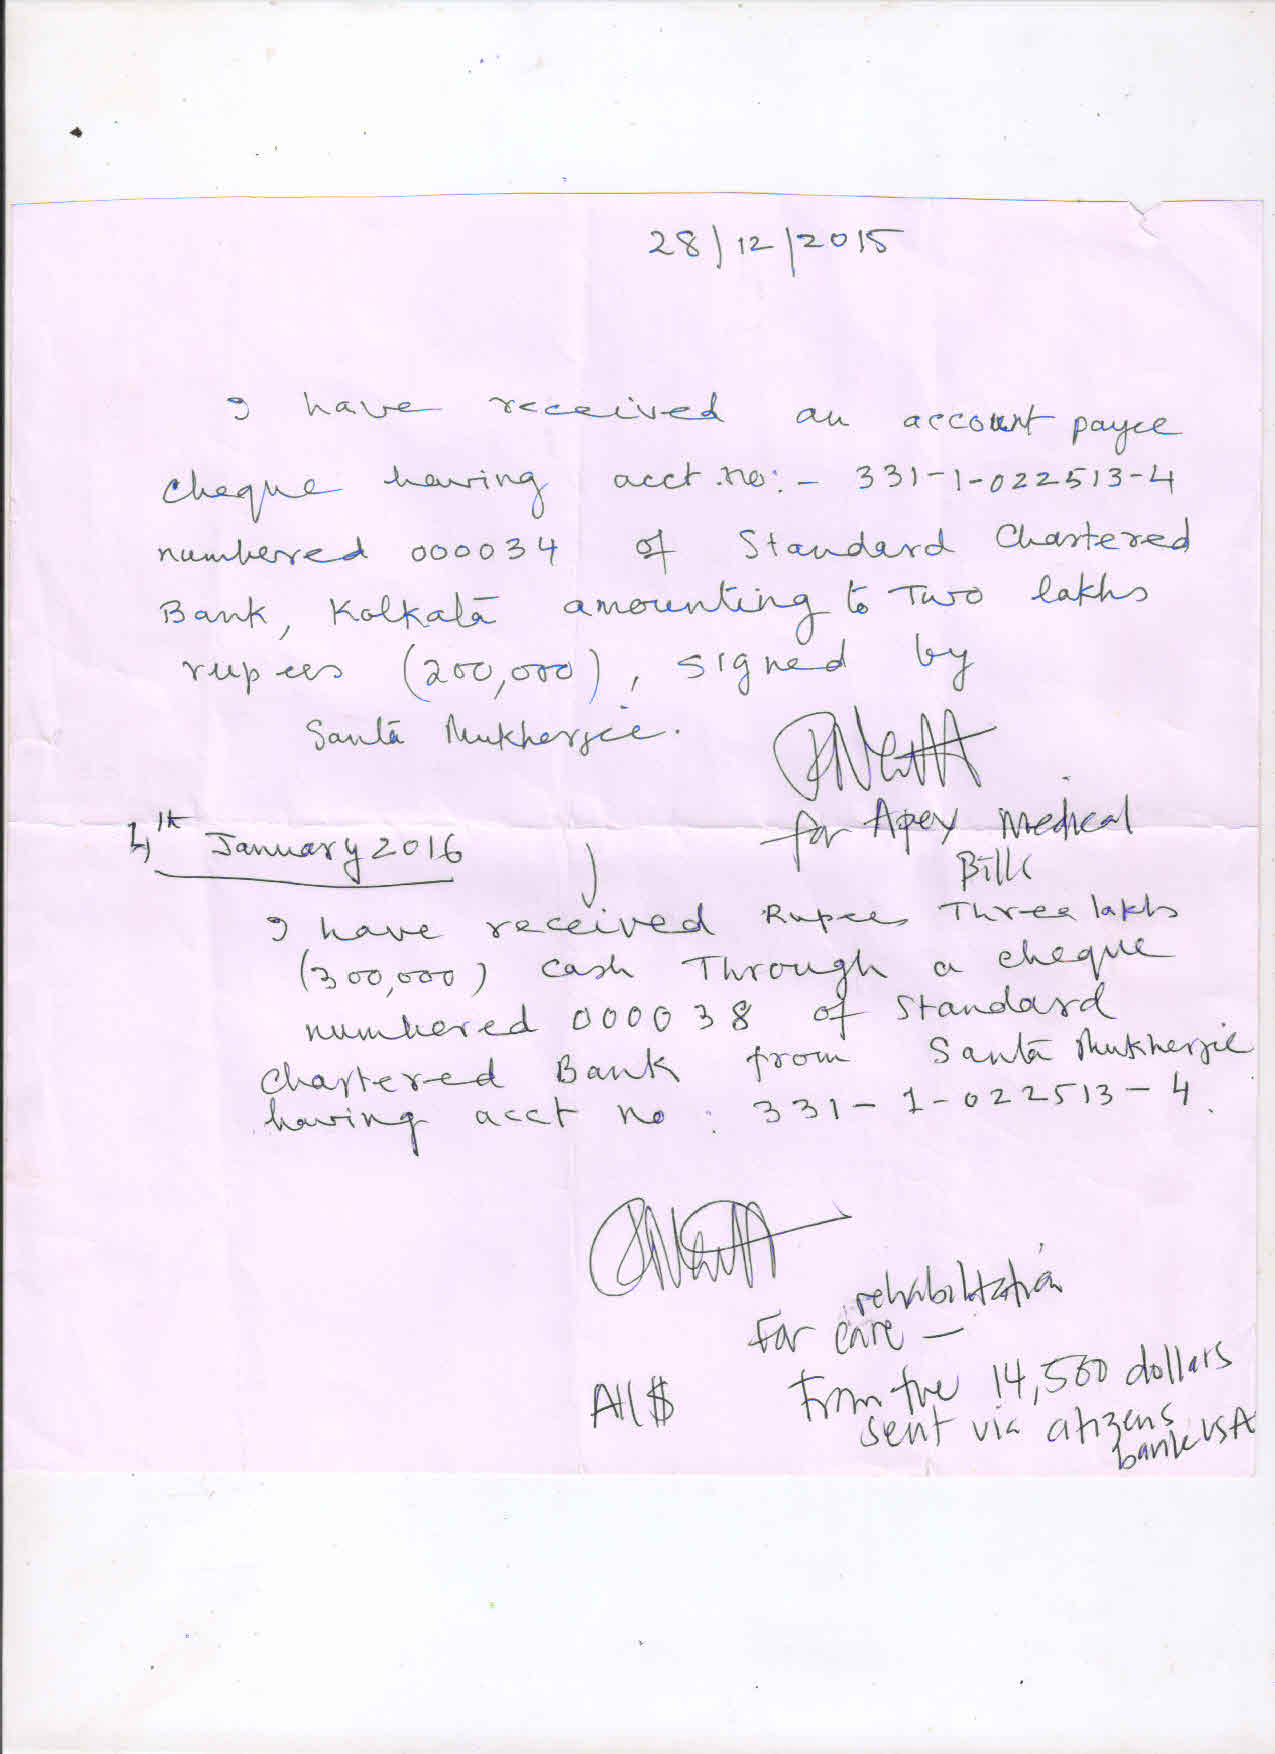 28/12/2015
I have received an account payee
cheque having acct.no:- 331-1-022513-4
numbered 000034 of Standard Chartered
Bank, Kolkatā amounting to Two lakhs
rupees (200,000), signed by
Santā Mukherjee.
for Apex Medical
Bills
4th January 2016
I have received Rupees Three lakhs
(300,000) cash Through a cheque
numbered 000038 of Standard
Chartered Bank from Santā Mukherjie
having acct no: 331-1-022513-4.
rehabilitation
For care —
All $ From the 14,500 dollars
sent via citizens
bank USA